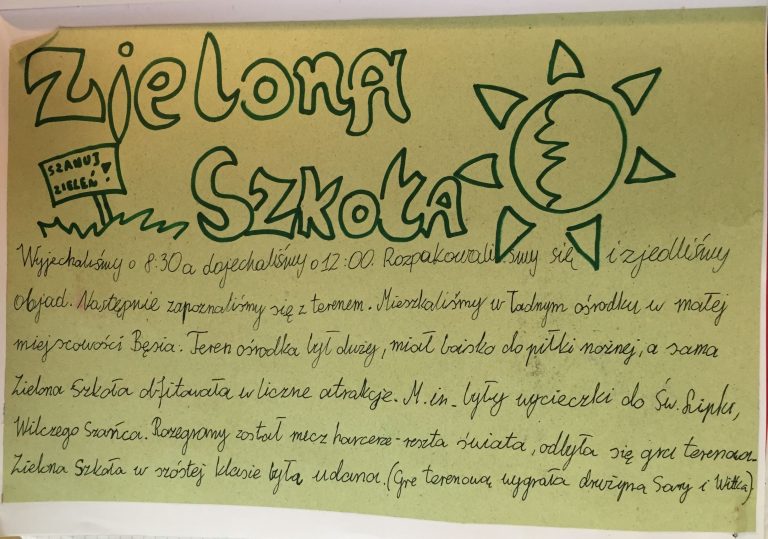 Zielona
Szkoła
SZANUJ
ZIELEŃ!
Wyjechaliśmy o 8:30 a dojechaliśmy o 12:00. Rozpakowaliliśmy się i zjedliśmy
objad. Następnie zapoznaliśmy się z terenem. Mieszkaliśmy w ładnym ośrodku w małej
miejscowości Bęsia. Teren ośrodka był duży, miał boisko do piłki nożnej, a sama
Zielona Szkoła obfitowała w liczne atrakcje. M.in. były wycieczki do Św. Lipki,
Wilczego Szańca. Rozegrany został mecz harcerze-reszta świata, odbyła się gra terenowa.
Zielona Szkoła w szóstej klasie była udana. (Grę terenową wygrała drużyna Sary i Witka).